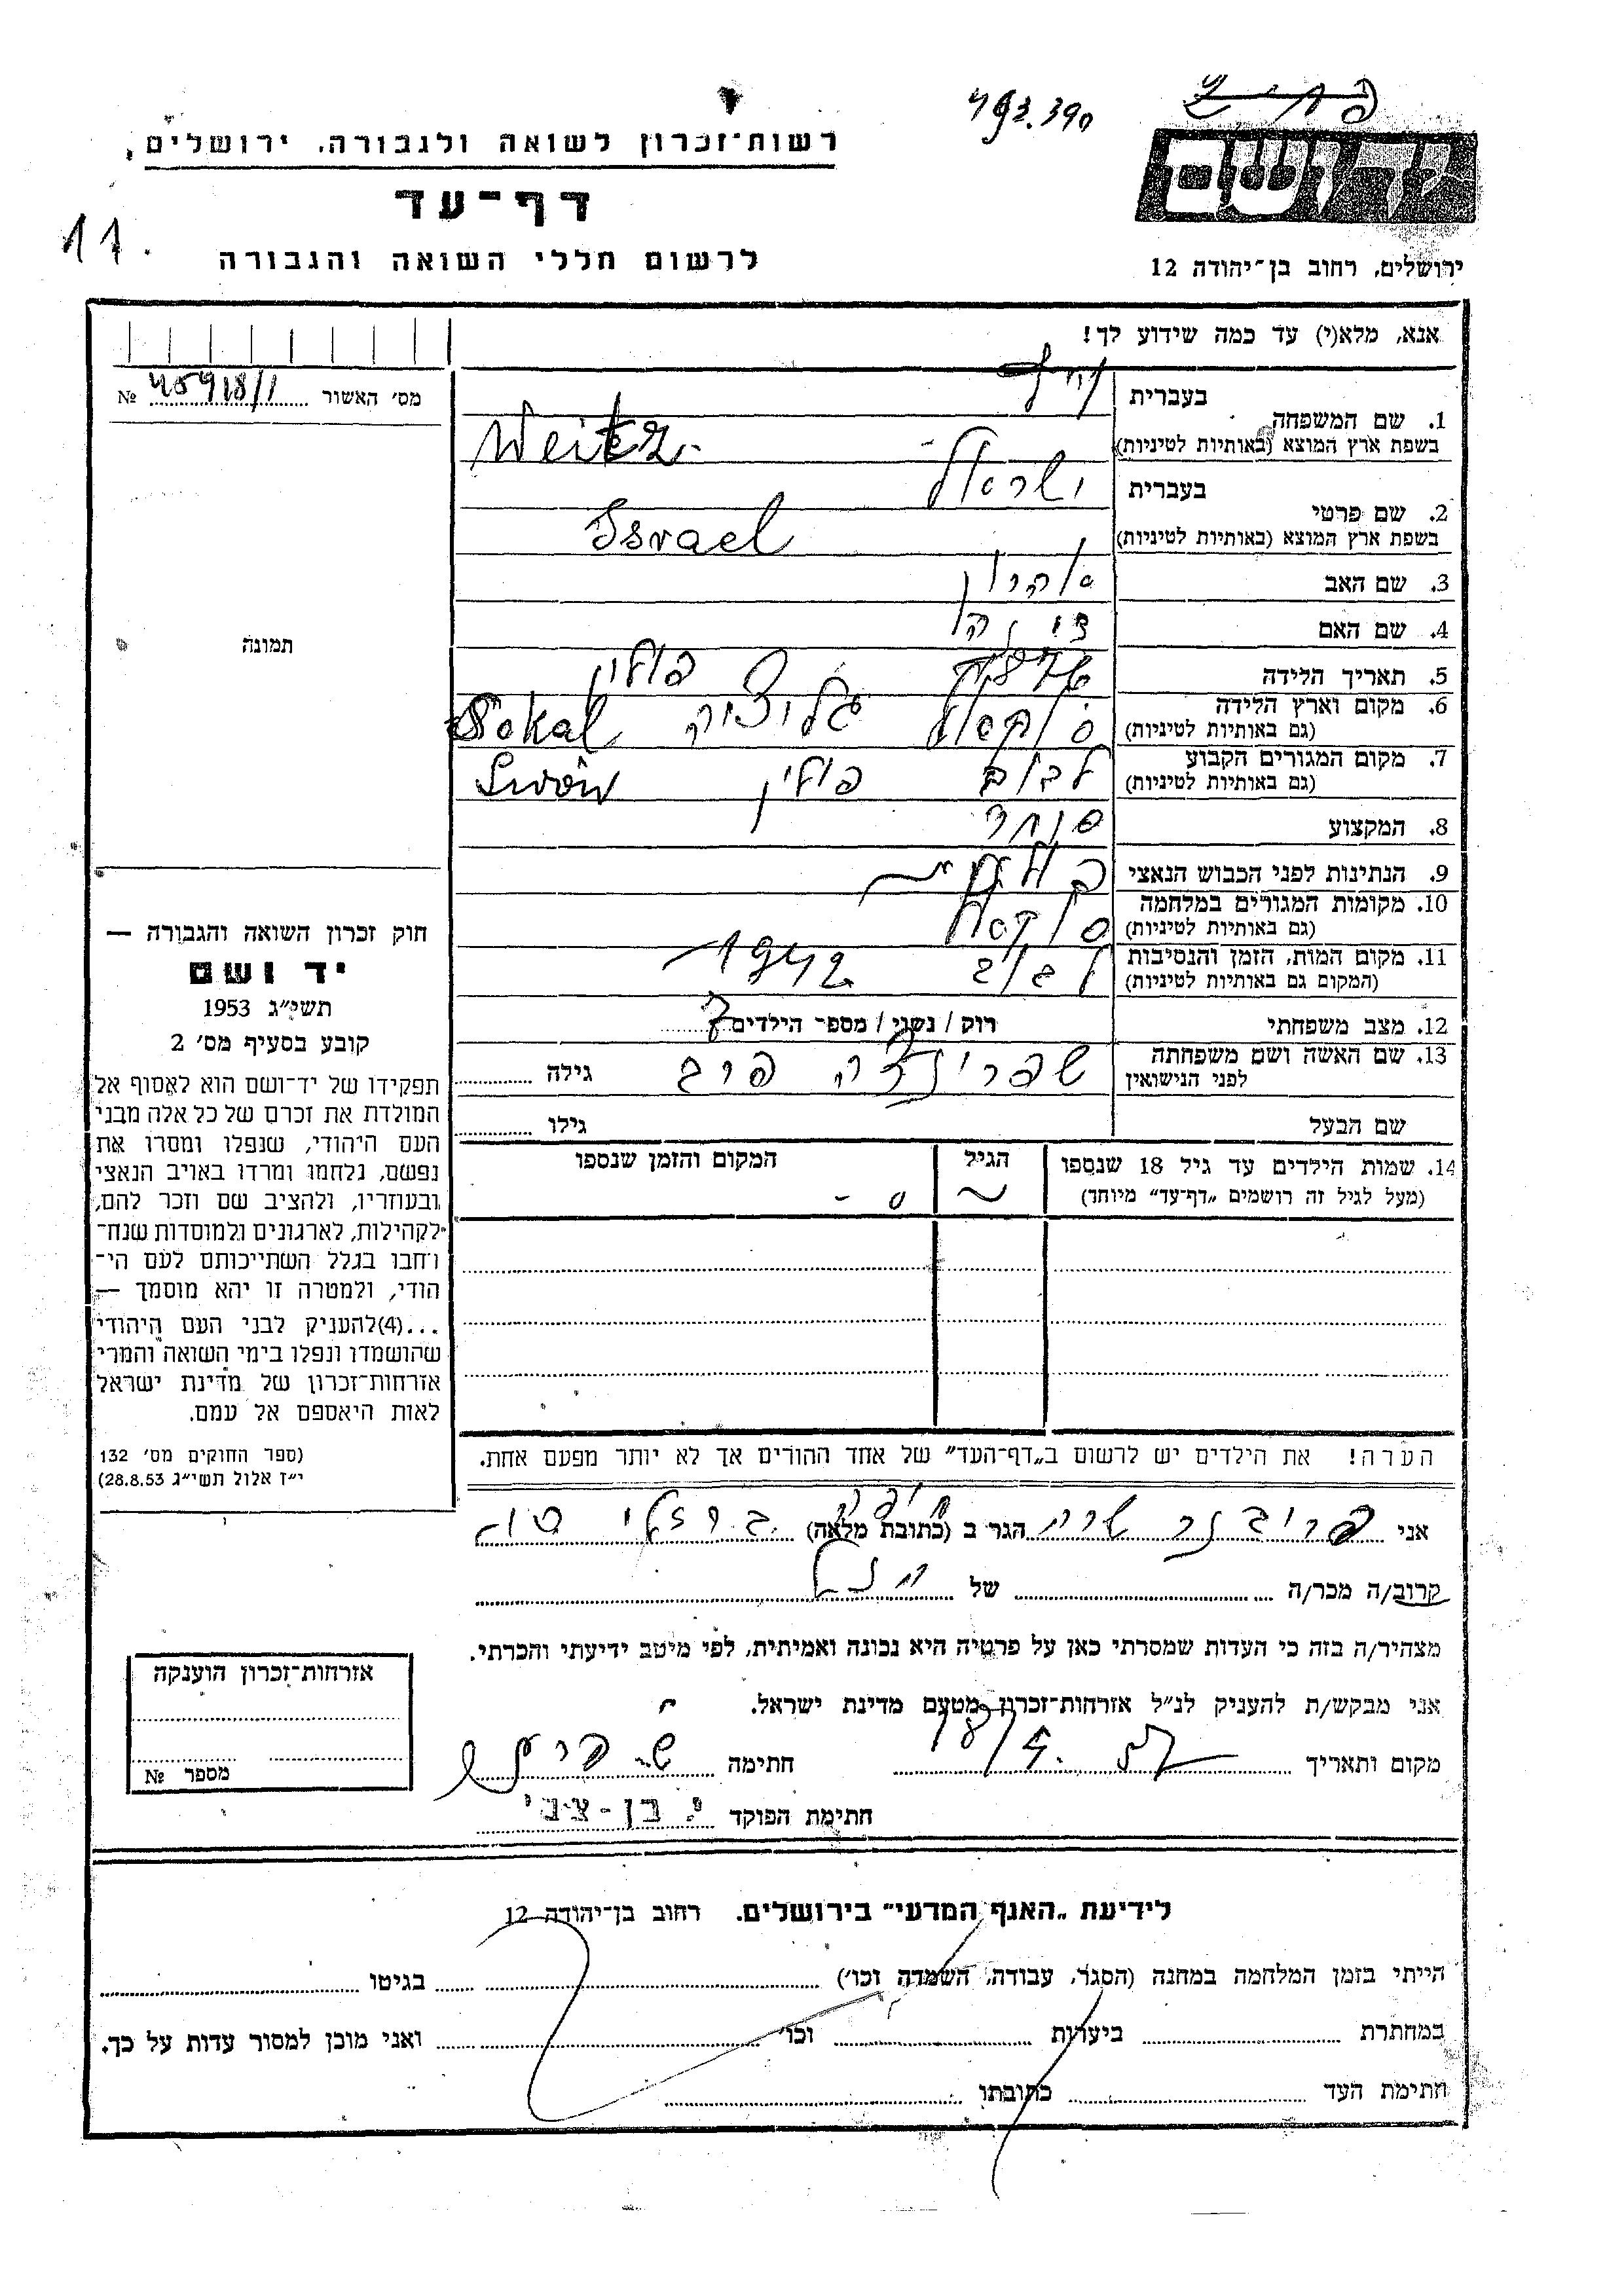 493.390
יד ושם
רשות־זכרון לשואה ולגבורה, ירושלים,
דף־עד
11.
לרשום חללי השואה והגבורה
ירושלים, רחוב בן־יהודה 12
אנא, מלא(י) עד כמה שידוע לך!
מס׳ האשור № 45918/1
1. שם המשפחה
בעברית
בשפת ארץ המוצא (באותיות לטיניות) Weitz
2. שם פרטי
בעברית ישראל
בשפת ארץ המוצא (באותיות לטיניות) Israel
3. שם האב אהרון
4. שם האם
תמונה
5. תאריך הלידה
6. מקום וארץ הלידה
(גם באותיות לטיניות) סוקאל גליציה פולין Sokal
7. מקום המגורים הקבוע
(גם באותיות לטיניות) לבוב פולין Lwów
8. המקצוע סוחר
9. הנתינות לפני הכבוש הנאצי פולנית
10. מקומות המגורים במלחמה
(גם באותיות לטיניות) סוקאל
11. מקום המות, הזמן והנסיבות
(המקום גם באותיות לטיניות) לבוב 1942
12. מצב משפחתי רוק / נשוי / מספר הילדים
13. שם האשה ושם משפחתה
לפני הנישואין שפרינצה גילה
שם הבעל גילו
14. שמות הילדים עד גיל 18 שנספו
(מעל לגיל זה רושמים „דף־עד״ מיוחד)
הגיל
המקום והזמן שנספו
הערה! את הילדים יש לרשום ב„דף־העד״ של אחד ההורים אך לא יותר מפעם אחת.
חוק זכרון השואה והגבורה —
יד ושם
תשי״ג 1953
קובע בסעיף מס׳ 2
תפקידו של יד־ושם הוא לאסוף אל
המולדת את זכרם של כל אלה מבני
העם היהודי, שנפלו ומסרו את
נפשם, נלחמו ומרדו באויב הנאצי
ובעוזריו, ולהציב שם וזכר להם,
לקהילות, לארגונים ולמוסדות שנח־
רחבו בגלל השתייכותם לעם הי־
הודי, ולמטרה זו יהא מוסמך —
...(4)להעניק לבני העם היהודי
שהושמדו ונפלו בימי השואה והמרי
אזרחות־זכרון של מדינת ישראל
לאות היאספם אל עמם.
(ספר החוקים מס׳ 132
י״ז אלול תשי״ג 28.8.53)
אני שרה הגר ב (כתובת מלאה) חיפה ברזלי
קרוב/ה מכר/ה של
מצהיר/ה בזה כי העדות שמסרתי כאן על פרטיה היא נכונה ואמיתית, לפי מיטב ידיעתי והכרתי.
אני מבקש/ת להעניק לנ״ל אזרחות־זכרון מטעם מדינת ישראל.
מקום ותאריך חתימה
חתימת הפוקד י. בן-צבי
אזרחות־זכרון הוענקה
מספר №
לידיעת „האגף המדעי״ בירושלים. רחוב בן־יהודה 12
הייתי בזמן המלחמה במחנה (הסגר, עבודה, השמדה וכו׳) בגיטו
במחתרת ביערות וכו׳ ואני מוכן למסור עדות על כך.
חתימת העד כתובתו